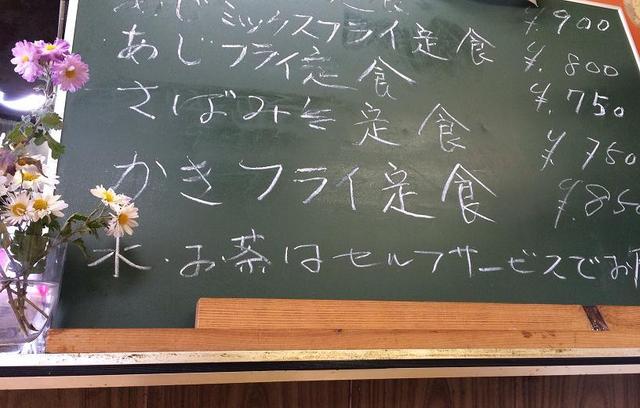 ¥.900
ミックスフライ定食 ¥.800
あじフライ定食 ¥.750
さばみそ定食 ¥750
かきフライ定食 ¥.850
水・お茶はセルフサービスでお